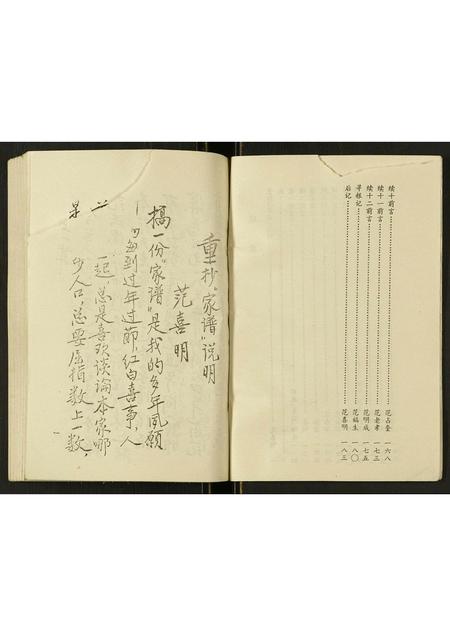 续十前言……范占奎 一六八
续十一前言……范老孝 一七三
续十二前言……范明成 一七五
寻根记……范福生 一八〇
后记……范喜明 一八三
重抄“家谱”说明
范喜明
搞一份“家谱”是我的多年夙愿
每到过年过节,红白喜事,人
一起,总是喜欢谈论本家哪
少人口,总要屈指数上一数,